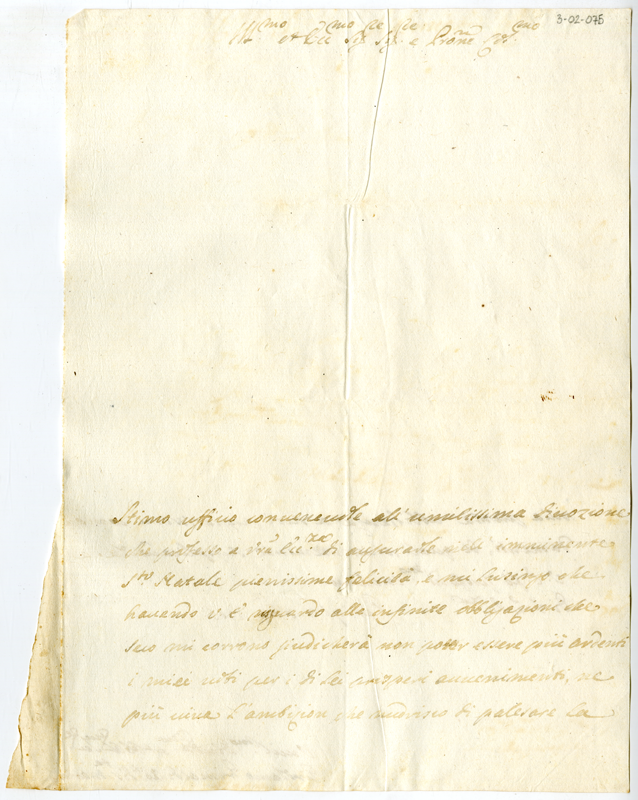 3-02-075
Ill.mo et Ecc.mo Sig.re Sig.re e Pron.e
Stimo ufficio conueneuole all' umilissima diuozione
che professo a vrã Ecc.za di augurarle nell' imminente
S.to Natale pienissime felicità, e mi lusingo che
hauendo v. E. riguardo alle infinite obbligazioni che
seco mi corrono giudicherà non poter essere più ardenti
i miei uoti per i di Lei prosperi auuenimenti, ne
più uiua l'ambizion che nudrisco di palesare la